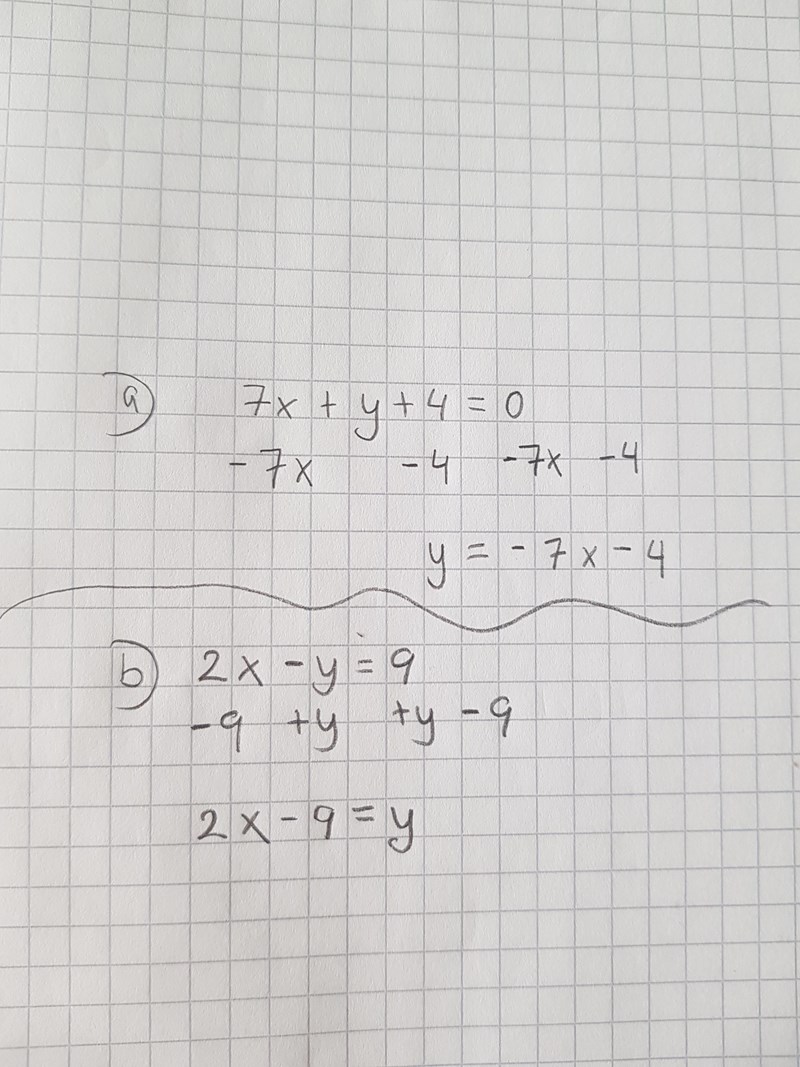 a) 7x + y + 4 = 0
-7x -4 -7x -4
y = -7x - 4
b) 2x - y = 9
-9 +y +y -9
2x - 9 = y